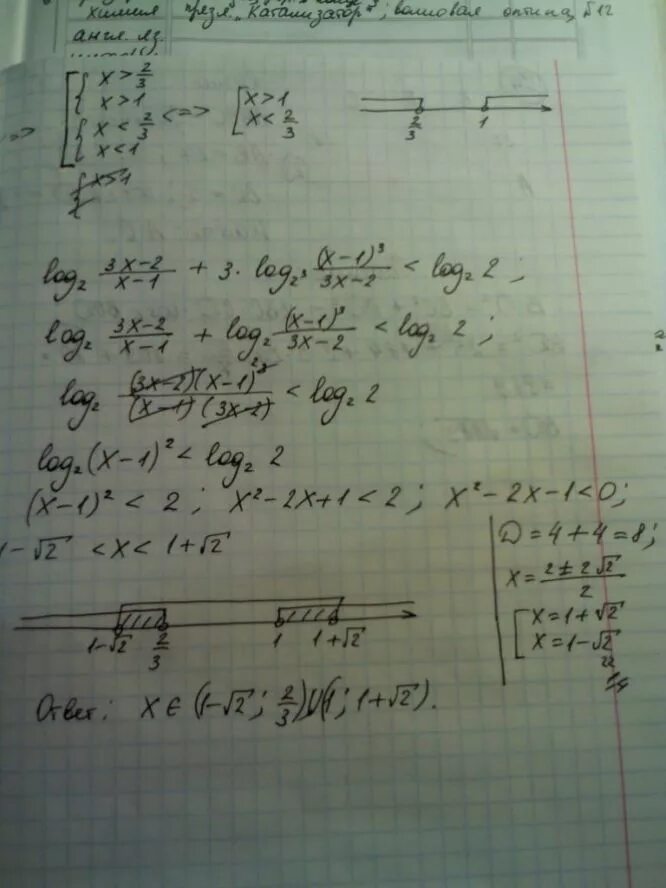 химия "Катализатор"; волновая оптика, §12
англ. яз.
=> [ { x > 2/3
x > 1
{ x < 2/3
x < 1
<=> [ x > 1
x < 2/3
2/3 1
log₂ (3x-2)/(x-1) + 3 · log₂³ (x-1)³/(3x-2) < log₂ 2 ;
log₂ (3x-2)/(x-1) + log₂ (x-1)³/(3x-2) < log₂ 2 ;
log₂ (3x-2)(x-1)³/(x-1)(3x-2) < log₂ 2
log₂(x-1)² < log₂ 2
(x-1)² < 2 ; x²-2x+1 < 2 ; x²-2x-1<0;
1-√2 < x < 1+√2
D = 4+4=8;
x = (2±2√2)/2
[ x = 1+√2
x = 1-√2
1-√2 2/3 1 1+√2
Ответ: x ∈ (1-√2; 2/3)U(1; 1+√2).